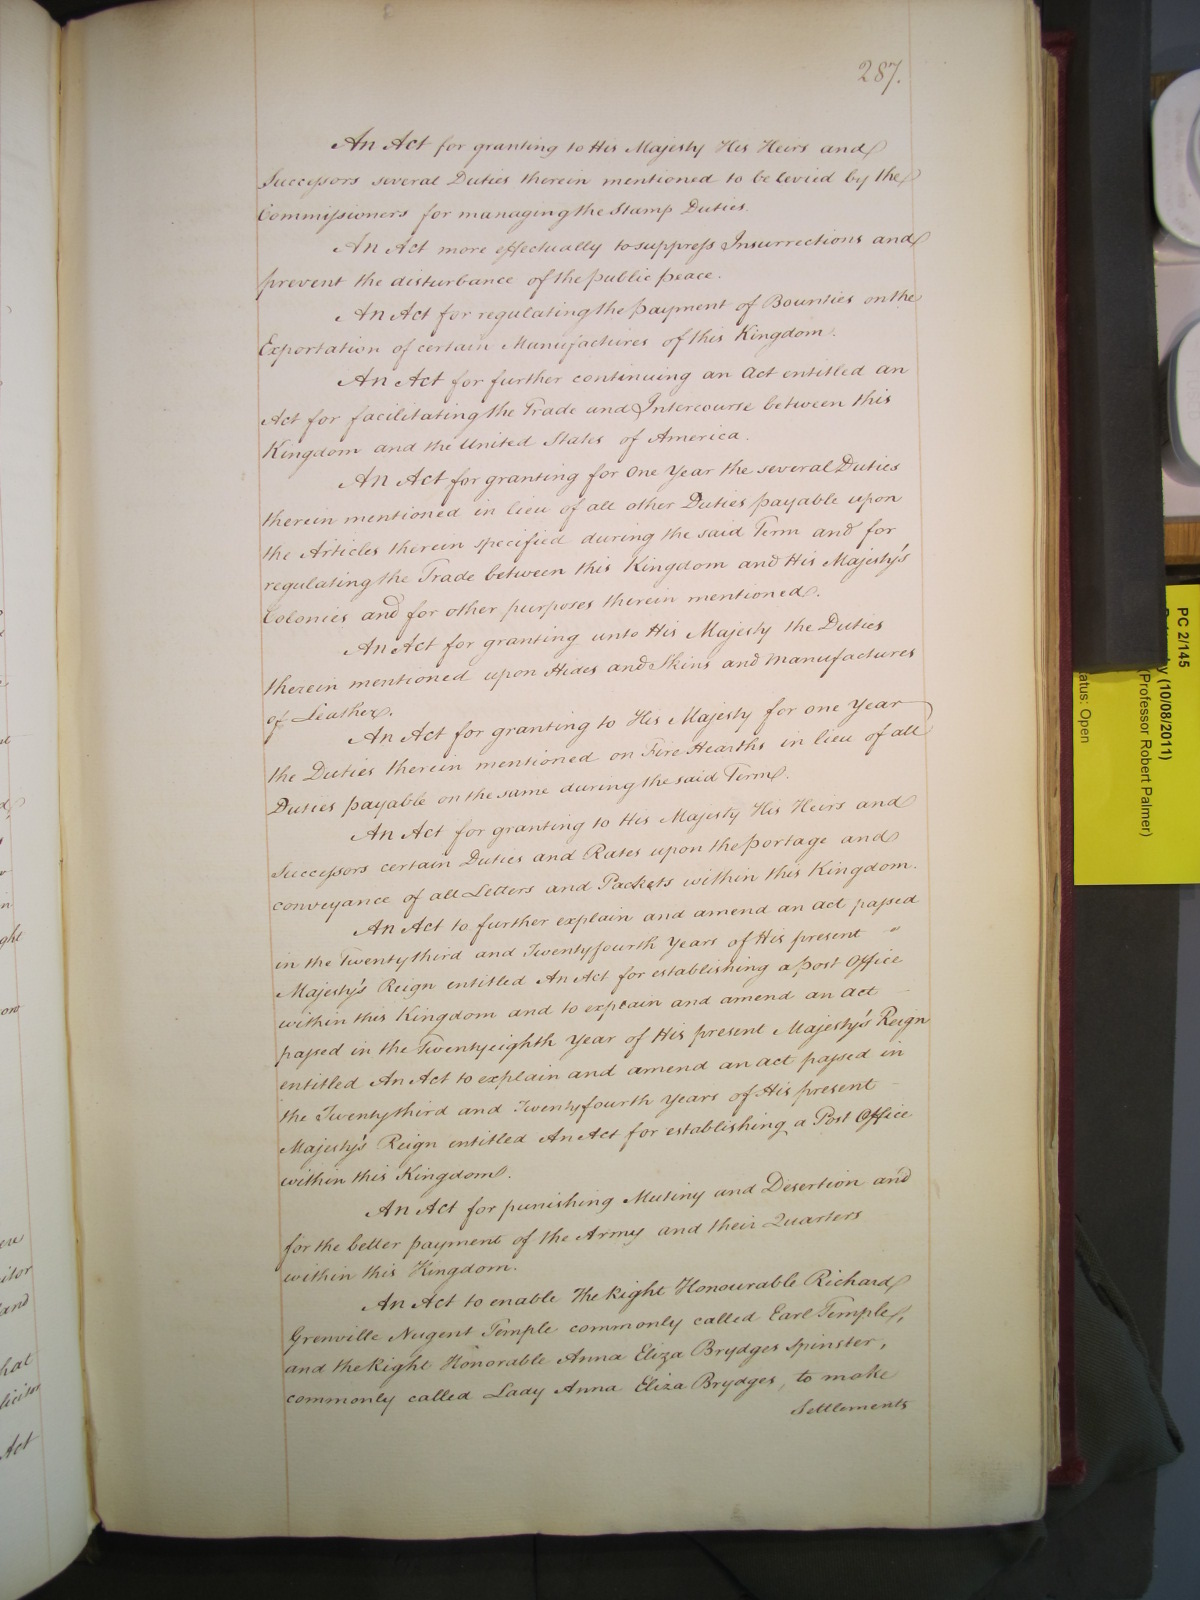 287.
An Act for granting to His Majesty His Heirs and
Successors several Duties therein mentioned to be levied by the
Commissioners for managing the Stamp Duties.
An Act more effectually to suppress Insurrections and
prevent the disturbance of the public peace.
An Act for regulating the payment of Bounties on the
Exportation of certain Manufactures of this Kingdom.
An Act for further continuing an Act entitled an
Act for facilitating the Trade and Intercourse between this
Kingdom and the United States of America.
An Act for granting for One Year the several Duties
therein mentioned in lieu of all other Duties payable upon
the Articles therein specified during the said Term and for
regulating the Trade between this Kingdom and His Majesty's
Colonies and for other purposes therein mentioned.
An Act for granting unto His Majesty the Duties
therein mentioned upon Hides and Skins and Manufactures
of Leather.
An Act for granting to His Majesty for one Year
the Duties therein mentioned on Fire Hearths in lieu of all
Duties payable on the same during the said Term.
An Act for granting to His Majesty His Heirs and
Successors certain Duties and Rates upon the portage and
conveyance of all Letters and Packets within this Kingdom.
An Act to further explain and amend an act passed
in the Twentythird and Twentyfourth Years of His present
Majesty's Reign entitled An Act for establishing a Post Office
within this Kingdom and to explain and amend an act
passed in the Twentyeighth Year of His present Majesty's Reign
entitled An Act to explain and amend an act passed in
the Twentythird and Twentyfourth Years of His present
Majesty's Reign entitled An Act for establishing a Post Office
within this Kingdom.
An Act for punishing Mutiny and Desertion and
for the better payment of the Army and their Quarters
within this Kingdom.
An Act to enable the Right Honourable Richard
Grenville Nugent Temple commonly called Earl Temple,
and the Right Honorable Anna Eliza Brydges Spinster,
commonly called Lady Anna Eliza Brydges, to make
Settlements
PC 2/145
(10/08/2011)
(Professor Robert Palmer)
atus: Open